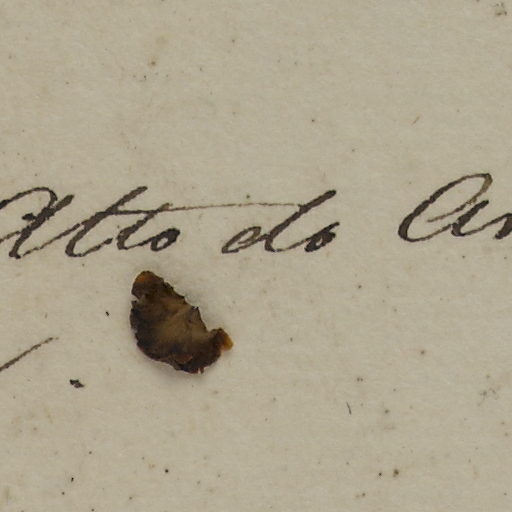 Alto do